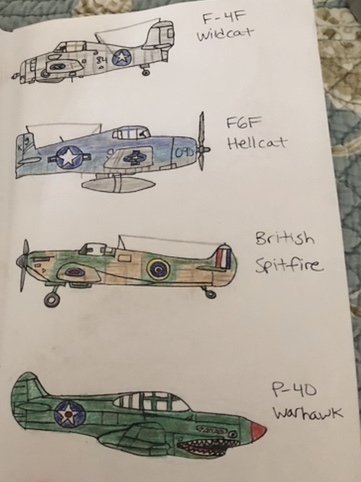 F-4F
Wildcat
84
F6F
Hellcat
British
Spitfire
P-40
Warhawk